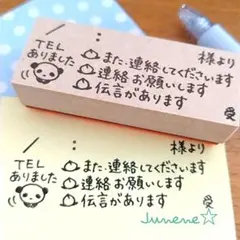 ／ : 様より
TEL ありました
また連絡してくださいます
連絡お願いします
伝言があります
愛
／ : 様より
TEL ありました
また連絡してくださいます
連絡お願いします
伝言があります
愛
Junene☆